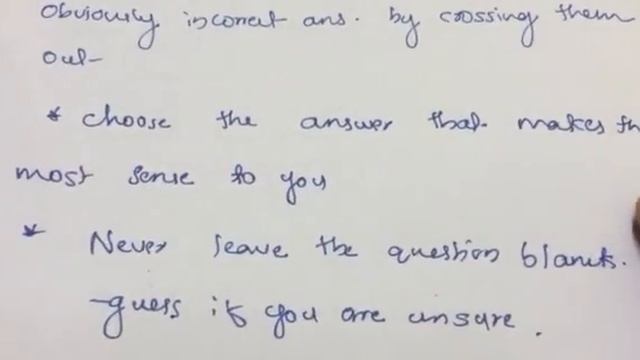 obviously incorrect ans. by crossing them
out
* choose the answer that makes th
most sense to you
* Never leave the question blank.
- guess if you are unsure.